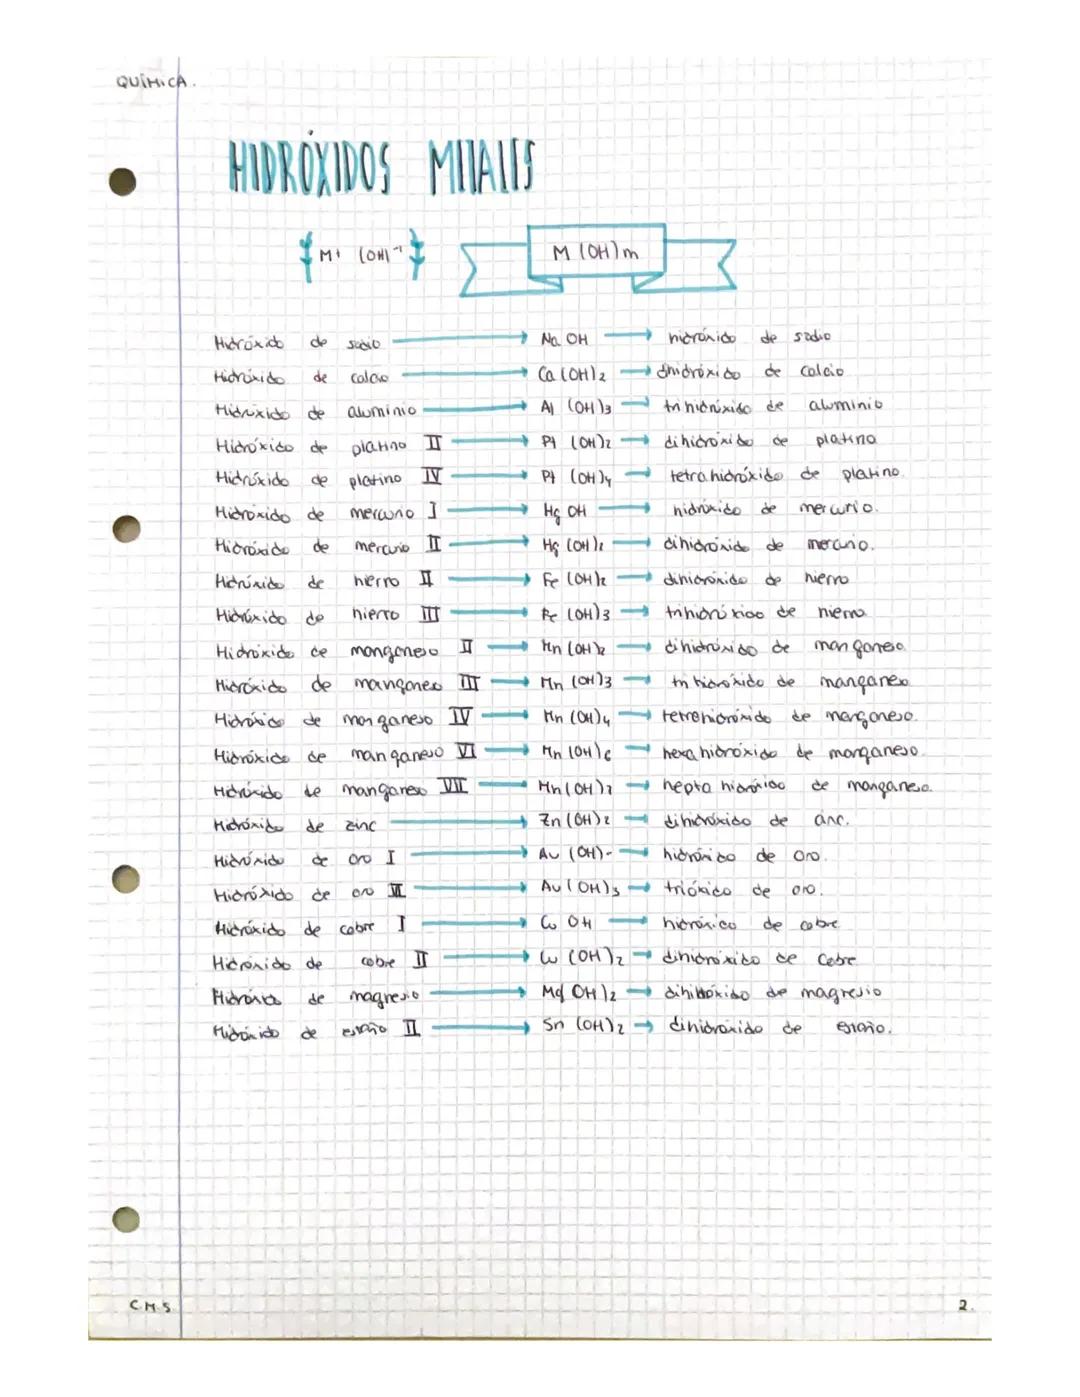 QUÍMICA.
HIDRÓXIDOS METALES
M+ (OH)⁻¹ M(OH)m
Hidróxido de sodio → Na OH → hidróxido de sodio
Hidróxido de calcio → Ca (OH)2 → dihidróxido de calcio
Hidróxido de aluminio → Al (OH)3 → trihidróxido de aluminio
Hidróxido de platino II → Pt (OH)2 → dihidróxido de platino
Hidróxido de platino IV → Pt (OH)4 → tetrahidróxido de platino.
Hidróxido de mercurio I → Hg OH → hidróxido de mercurio.
Hidróxido de mercurio II → Hg (OH)2 → dihidróxido de mercurio.
Hidróxido de hierro II → Fe (OH)2 → dihidróxido de hierro
Hidróxido de hierro III → Fe (OH)3 → trihidróxido de hierro
Hidróxido de manganeso II → Mn (OH)2 → dihidróxido de manganeso
Hidróxido de manganeso III → Mn (OH)3 → trihidróxido de manganeso
Hidróxido de manganeso IV → Mn (OH)4 → tetrahidróxido de manganeso.
Hidróxido de manganeso VI → Mn (OH)6 → hexahidróxido de manganeso.
Hidróxido de manganeso VII → Mn (OH)7 → heptahidróxido de manganeso.
Hidróxido de zinc → Zn (OH)2 → dihidróxido de zinc.
Hidróxido de oro I → Au (OH)- → hidróxido de oro.
Hidróxido de oro III → Au (OH)3 → trióxido de oro.
Hidróxido de cobre I → Cu OH → hidróxido de cobre
Hidróxido de cobre II → Cu (OH)2 → dihidróxido de cobre
Hidróxido de magnesio → Mg OH)2 → dihidróxido de magnesio
Hidróxido de estaño II → Sn (OH)2 → dihidróxido de estaño.
C.M.S 2.